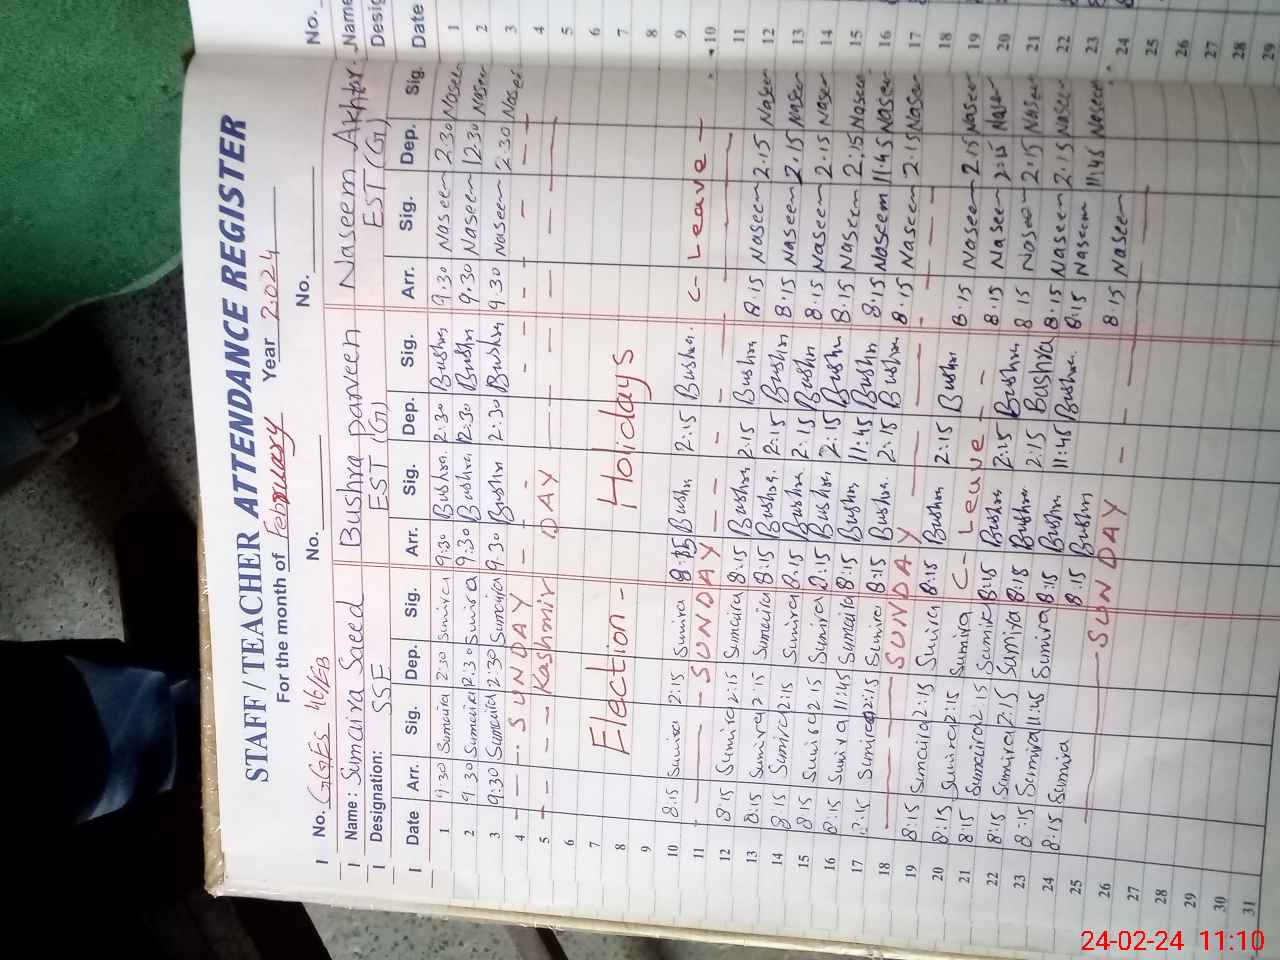 STAFF / TEACHER ATTENDANCE REGISTER
For the month of February Year 2024
No. GGES 46/EB No. No. No.
Name: Sumaira Saeed Bushra parveen Naseem Akhtar. Name
Designation: SSE EST (G) EST (G) Desig
Date Arr. Sig. Dep. Sig. Arr. Sig. Dep. Sig. Arr. Sig. Dep. Sig. Date
1 9:30 Sumaira 2:30 Sumira 9:30 Bushra. 2:30 Bushra 9:30 Naseem 2:30 Naseem 1
2 9:30 Sumaira 2:30 Sumira 9:30 Bushra 2:30 Bushra 9:30 Naseem 2:30 Naseem 2
3 9:30 Sumaira 2:30 Sumaira 9:30 Bushra 2:30 Bushra 9:30 Naseem 2:30 Naseem 3
4 SUNDAY 4
5 Kashmir DAY 5
6 6
7 Election - Holidays 7
8 8
9 9
10 8:15 Sumira 2:15 Sumira 8:15 Bushra 2:15 Bushra. C- Leave 10
11 SUNDAY 11
12 8:15 Sumira 2:15 Sumaira 8:15 Bushra 2:15 Bushra 8:15 Naseem 2:15 Naseem 12
13 8:15 Sumira 2:15 Sumaira 8:15 Bushra. 2:15 Bushra 8:15 Naseem 2:15 Naseem 13
14 8:15 Sumira 2:15 Sumira 8:15 Bushra 2:15 Bushra 8:15 Naseem 2:15 Naseem 14
15 8:15 Sumira 2:15 Sumira 8:15 Bushra 2:15 Bushra 8:15 Naseem 2:15 Naseem 15
16 8:15 Sumira 11:45 Sumaira 8:15 Bushra 11:45 Bushra 8:15 Naseem 11:45 Naseem 16
17 Sumira 2:15 Sumira 8:15 Bushra. 2:15 Bushra 8:15 Naseem 2:15 Naseem 17
18 SUNDAY 18
19 8:15 Sumaira 2:15 Sumira 8:15 Bushra 2:15 Bushra 8:15 Naseem 2:15 Naseem 19
20 8:15 Sumira 2:15 Sumira C- Leave 8:15 Naseem 2:15 Naseem 20
21 8:15 Sumaira 2:15 Sumira 8:15 Bushra 2:15 Bushra 8:15 Naseem 2:15 Naseem 21
22 8:15 Sumira 2:15 Sumira 8:15 Bushra 2:15 Bushra 8:15 Naseem 2:15 Naseem 22
23 8:15 Sumira 11:45 Sumira 8:15 Bushra 11:45 Bushra. 8:15 Naseem 11:45 Naseem 23
24 8:15 Sumira 8:15 Bushra 8:15 Naseem 24
25 SUNDAY 25
26 26
27 27
28 28
29 29
30
31
24-02-24 11:10